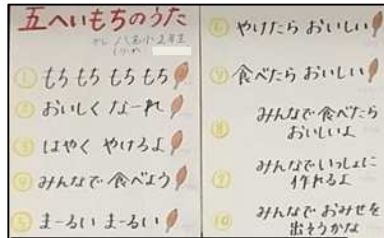 五へいもちのうた
① もち もち もち もち
② おいしく なーれ
③ はやく やけろよ
④ みんなで 食べよう
⑤ まーるい まーるい
⑥ やけたら おいしい
⑦ 食べたら おいしい
⑧ みんなで 食べたら
おいしいよ
⑨ みんなで いっしょに
作れるよ
⑩ みんなで おみせを
出そうかな